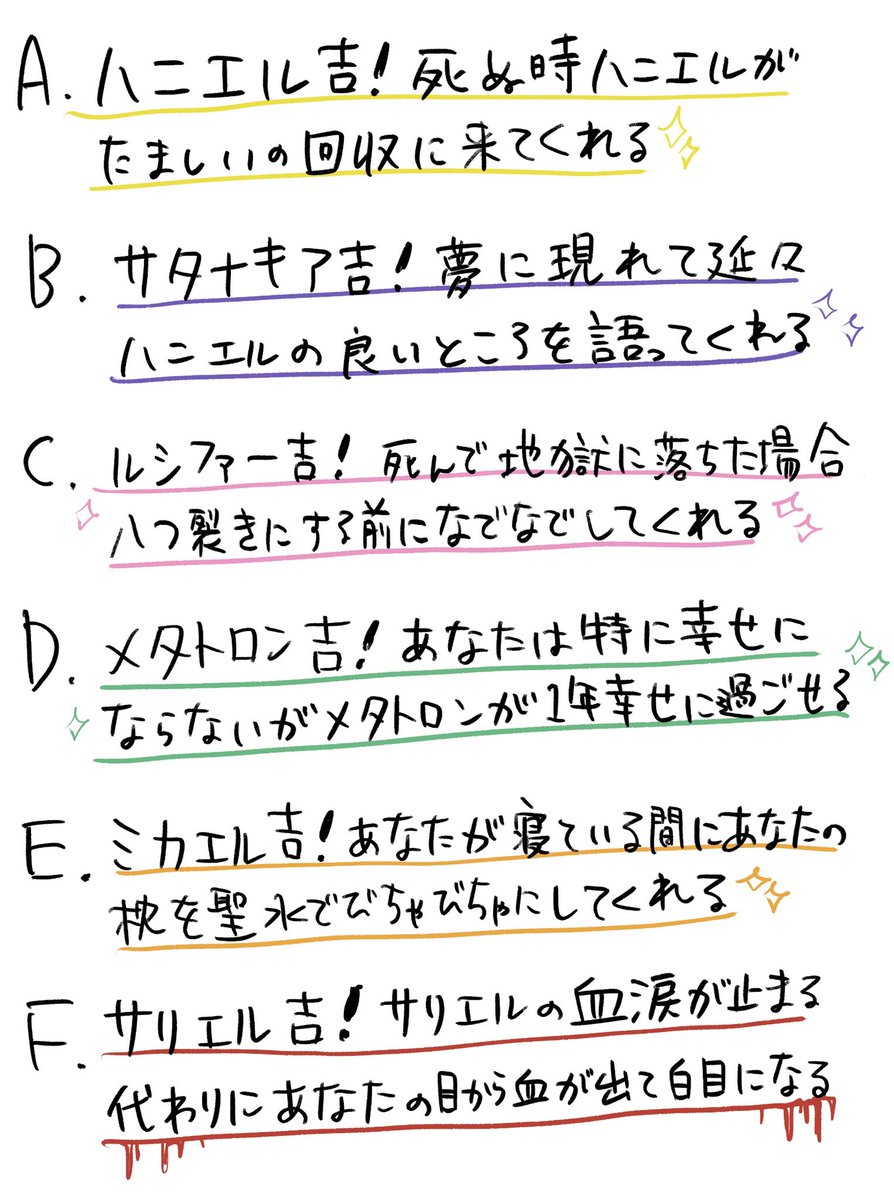 A. ハニエル吉! 死ぬ時ハニエルが
たましいの回収に来てくれる
B. サタナキア吉! 夢に現れて延々
ハニエルの良いところを語ってくれる
C. ルシファー吉! 死んで地獄に落ちた場合
八つ裂きにする前になでなでしてくれる
D. メタトロン吉! あなたは特に幸せに
ならないがメタトロンが1年幸せに過ごせる
E. ミカエル吉! あなたが寝ている間にあなたの
枕を聖水でびちゃびちゃにしてくれる
F. サリエル吉! サリエルの血涙が止まる
代わりにあなたの目から血が出て白目になる